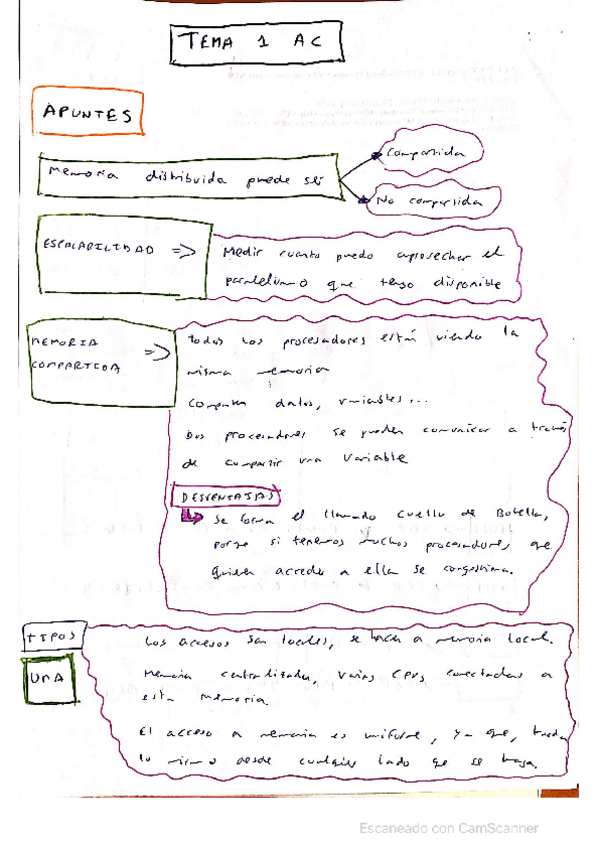 TEMA 1 AC
APUNTES
Memoria distribuida puede ser
Compartida
No compartida
ESCALABILIDAD =>
Medir cuanto puedo aprovechar el
paralelismo que tengo disponible
MEMORIA
COMPARTIDA =>
todos los procesadores están viendo la
misma memoria
Comparten datos, variables...
Dos procesadores se pueden comunicar a través
de compartir una variable
DESVENTAJAS
Se forma el llamado Cuello de Botella,
porque si tenemos muchos procesadores que
quieren acceder a ella se congestiona.
TIPOS
UMA
Los accesos son locales, se hacen a memoria local.
Memoria centralizada, varias CPUs conectadas a
esta memoria.
El acceso a memoria es uniforme, ya que, tarda
lo mismo desde cualquier lado que se haga.
Escaneado con CamScanner